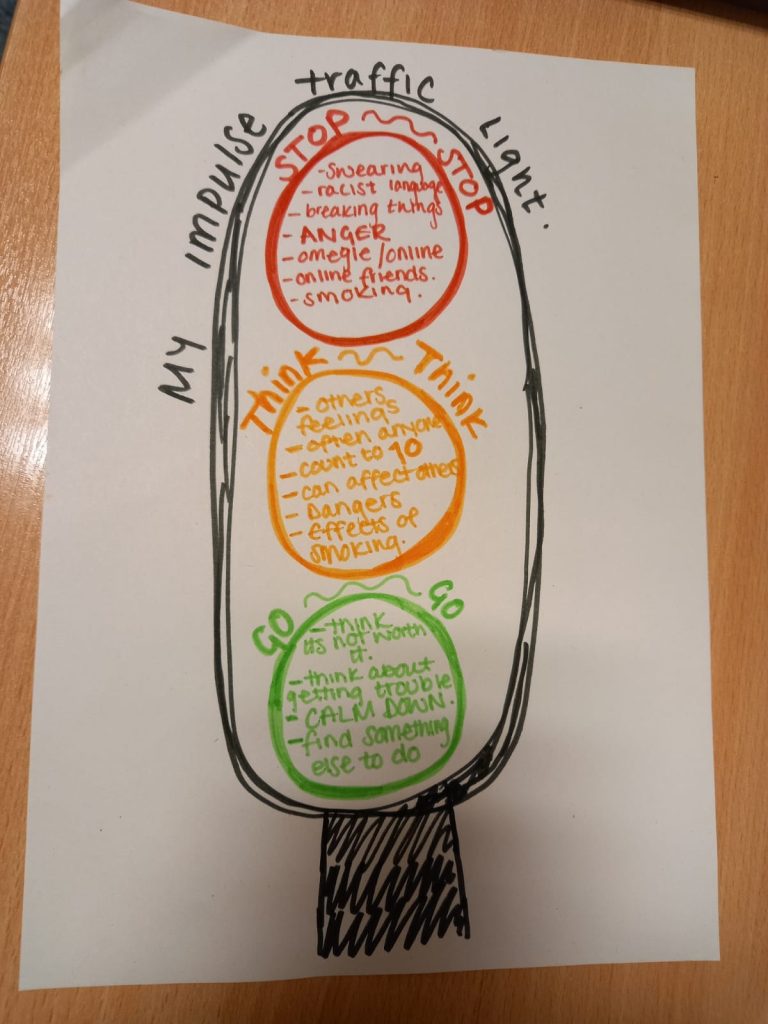 MY IMPULSE traffic Light.
STOP STOP
- Swearing
- racist language
- breaking things
- ANGER
- omegle / online
- online friends.
- smoking.
Think Think
- others
feelings
- often anyone
- count to 10
- can affect others
- Dangers
- Effects of
smoking.
GO GO
- think
its not worth
it.
- think about
getting trouble
- CALM DOWN.
- find something
else to do